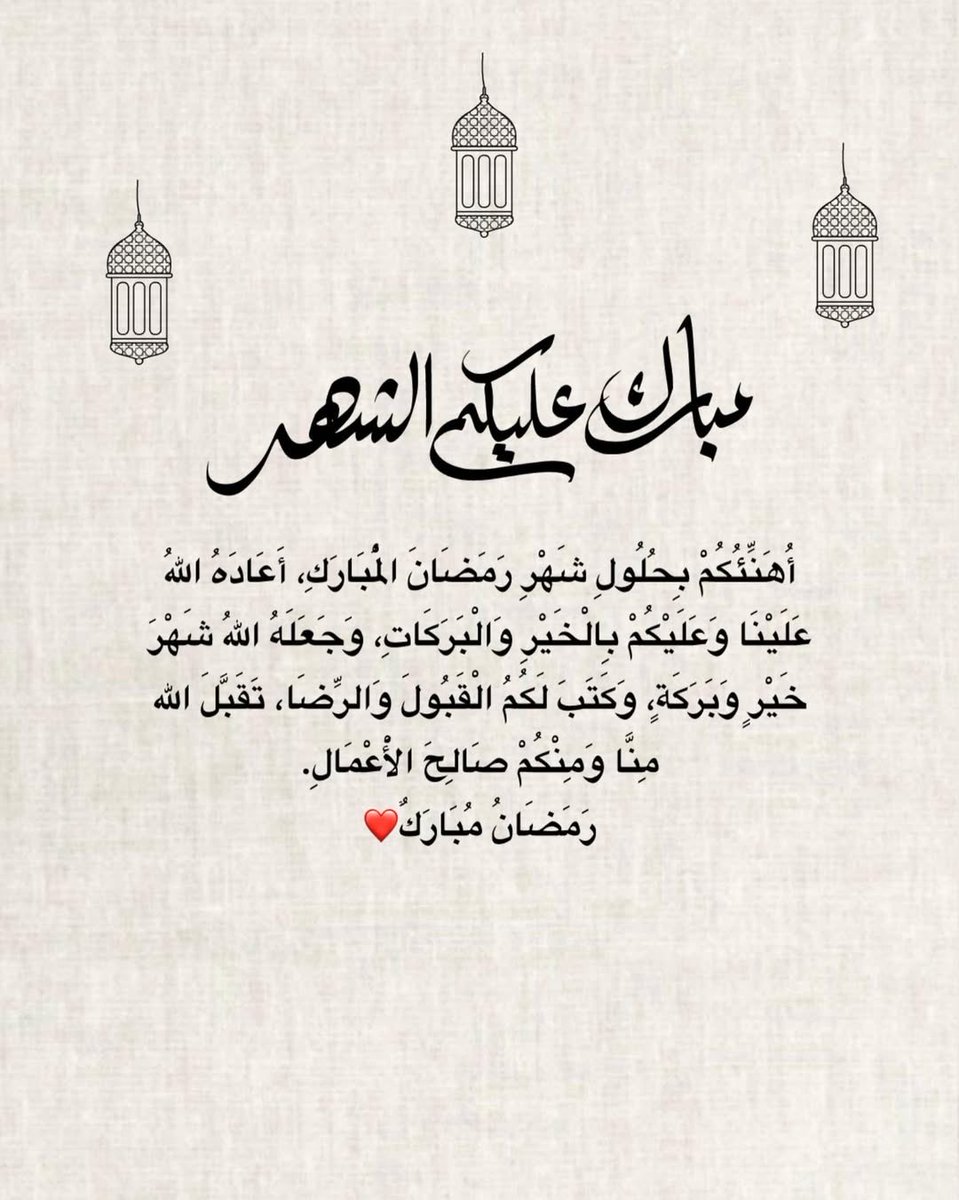 مبارك عليكم الشهر
أُهَنِّئُكُمْ بِحُلُولِ شَهْرِ رَمَضَانَ الْمُبَارَكِ، أَعَادَهُ اللهُ
عَلَيْنَا وَعَلَيْكُمْ بِالْخَيْرِ وَالْبَرَكَاتِ، وَجَعَلَهُ اللهُ شَهْرَ
خَيْرٍ وَبَرَكَةٍ، وَكَتَبَ لَكُمُ الْقَبُولَ وَالرِّضَا، تَقَبَّلَ الله
مِنَّا وَمِنْكُمْ صَالِحَ الْأَعْمَالِ.
رَمَضَانُ مُبَارَكٌ❤️